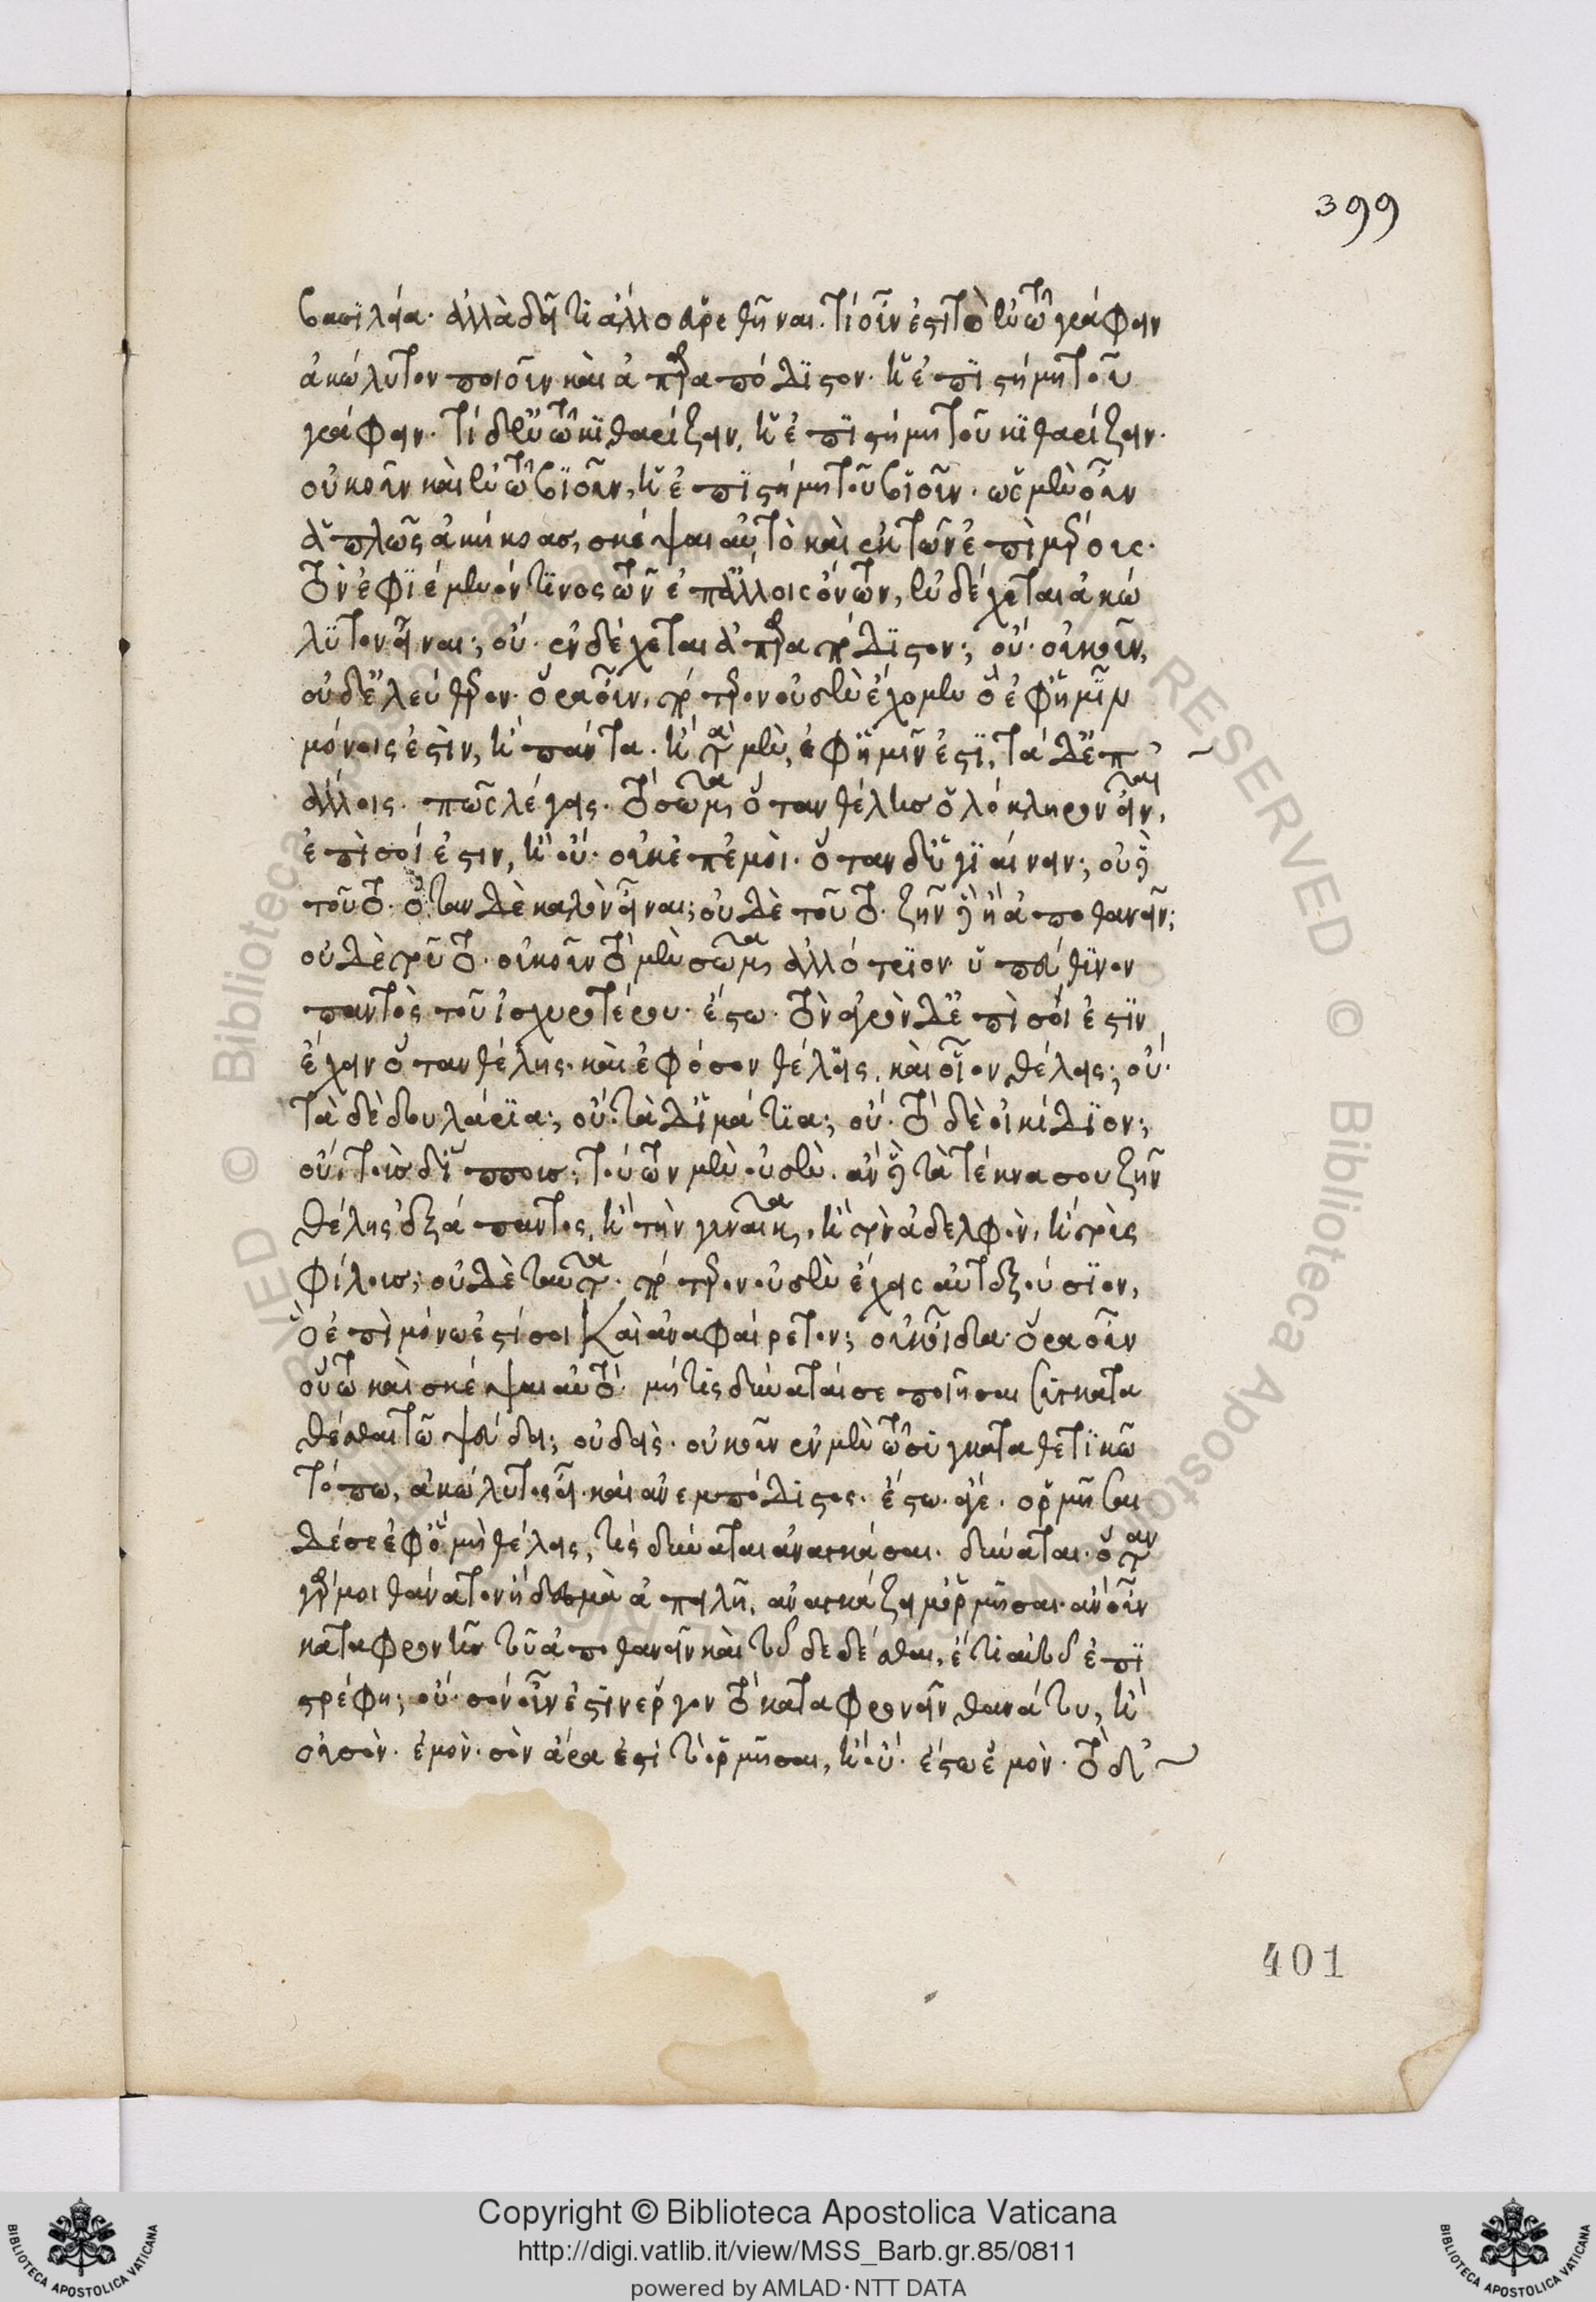 399
βασιλεία· ἀλλὰ δεῖ τι ἄλλο εὑρεθῆναι. τί οὖν ἐστι τὸ ἐν τῷ γράφειν
ἀκώλυτον ποιοῦν καὶ ἀπαραπόδιστον. ἡ ἐπιστήμη τοῦ
γράφειν. τί δ' ἐν τῷ κιθαρίζειν, ἡ ἐπιστήμη τοῦ κιθαρίζειν.
οὐκοῦν καὶ ἐν τῷ βιοῦν, ἡ ἐπιστήμη τοῦ βιοῦν. ὡς μὲν οὖν
ἁπλῶς ἀκήκοας, σκέψαι αὐτὸ καὶ ἐκ τῶν ἐπὶ μέρους.
τὸν ἐφιέμενόν τινος τῶν ἐπ' ἄλλοις ὄντων, ἐνδέχεται ἀκώ
λυτον εἶναι; οὔ. ἐνδέχεται ἀπαραπόδιστον; οὔ. οὐκοῦν,
οὐδ' ἐλεύθερον. ὅρα οὖν, πότερον οὐδὲν ἔχομεν ὃ ἐφ' ἡμῖν
μόνοις ἐστὶν, ἢ πάντα. ἢ τὰ μὲν, ἐφ' ἡμῖν ἐστι, τὰ δ' ἐπ'
ἄλλοις. πῶς λέγεις. τὸ σῶμα ὅταν θέλῃς ὁλόκληρον εἶναι,
ἐπὶ σοί ἐστιν, ἢ οὔ. οὐκ ἐπ' ἐμοὶ. ὅταν δ' ὑγιαίνειν; οὐδὲ
τοῦτο. ὅταν δὲ καλὸν εἶναι; οὐδὲ τοῦτο. ζῆν δὲ ἢ ἀποθανεῖν;
οὐδὲ τοῦτο. οὐκοῦν τὸ μὲν σῶμα ἀλλότριον ὑπεύθυνον
παντὸς τοῦ ἰσχυροτέρου. ἔστω. τὸν ἀγρὸν δ' ἐπὶ σοί ἐστιν
ἔχειν ὅταν θέλῃς. καὶ ἐφόσον θέλεις, καὶ οἷον θέλεις; οὔ.
τὰ δὲ δουλάρια; οὔ. τὰ δ' ἱμάτια; οὔ. τὸ δὲ οἰκίδιον;
οὔ. τοὺς δ' ἵππους; τούτων μὲν οὐδὲν. ἂν δὲ τὰ τέκνα σου ζῆν
θέλῃς ἐξάπαντος, ἢ τὴν γυναῖκα, ἢ τὸν ἀδελφὸν, ἢ τοὺς
φίλους; οὐδὲ ταῦτα. πότερον οὐδὲν ἔχεις αὐτεξούσιον,
ὃ ἐπὶ μόνῳ ἐστί σοι καὶ ἀναφαίρετον; οὐκ οἶδα. ὅρα οὖν
οὕτω καὶ σκέψαι αὐτό. μή τις δύναταί σε ποιῆσαι συγκατα
θέσθαι τῷ ψεύδει; οὐδεὶς. οὐκοῦν ἐν μὲν τῷ συγκαταθετικῷ
τόπῳ, ἀκώλυτος εἶ καὶ ἀνεμπόδιστος. ἔστω. ἄγε. ὁρμῆσαι
δέ σε ἐφ' ὃ μὴ θέλεις, τίς δύναται ἀναγκάσαι. δύναται. ὅταν
γάρ μοι θάνατον ἢ δεσμὰ ἀπειλῇ, ἀναγκάζει μ' ὁρμῆσαι. ἂν οὖν
καταφρονῇς τοῦ ἀποθανεῖν καὶ τοῦ δεδέσθαι, ἔτι αὐτοῦ ἐπι
στρέφῃ; οὔ. σὸν οὖν ἐστιν ἔργον τὸ καταφρονεῖν θανάτου, ἢ
οὐ σὸν. ἐμὸν. σὸν ἄρα ἐστὶ τὸ ὁρμῆσαι, ἢ οὔ. ἔστω ἐμὸν. τὸ δ'
401
© Biblioteca Apostolica Vaticana
RESERVED © Biblioteca Apostolica
Copyright © Biblioteca Apostolica Vaticana
http://digi.vatlib.it/view/MSS_Barb.gr.85/0811
powered by AMLAD · NTT DATA
BIBLIOTECA APOSTOLICA VATICANA
BIBLIOTECA APOSTOLICA VATICANA